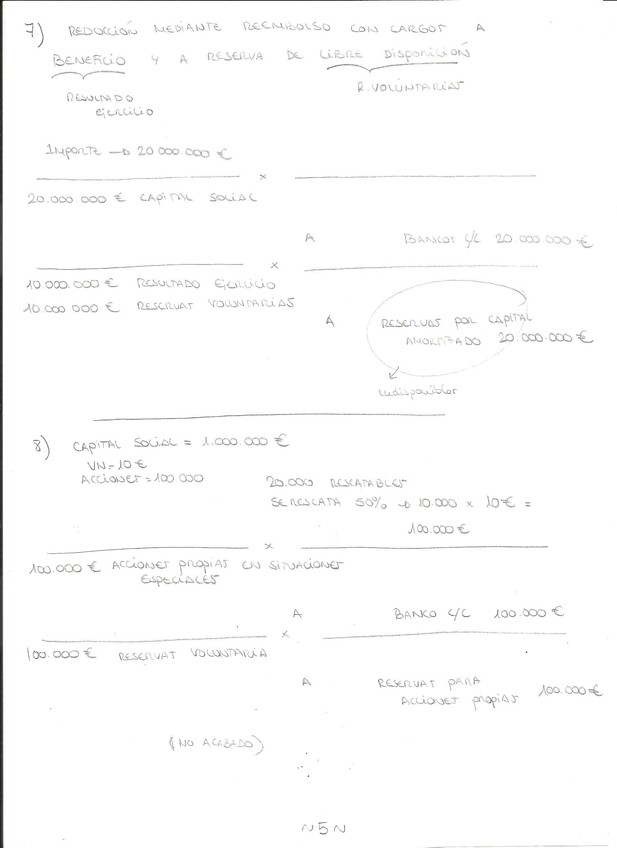 7) REDUCCIÓN MEDIANTE REEMBOLSO CON CARGOS A
BENEFICIO Y A RESERVA DE LIBRE DISPOSICIÓN
RESULTADO
EJERCICIO
R. VOLUNTARIAS
IMPORTE → 20 000 000 €
x
20.000.000 € CAPITAL SOCIAL
A BANCOS C/C 20.000.000 €
x
10.000.000 € RESULTADO EJERCICIO
10.000.000 € RESERVAS VOLUNTARIAS
A RESERVAS POR CAPITAL
AMORTIZADO 20.000.000 €
indisponibles
8) CAPITAL SOCIAL = 1.000.000 €
VN = 10 €
ACCIONES = 100 000
20.000 RESCATABLES
SE RESCATA 50% → 10.000 x 10 € =
100.000 €
x
100.000 € ACCIONES PROPIAS EN SITUACIONES
ESPECIALES
A BANCO C/C 100.000 €
x
100.000 € RESERVAS VOLUNTARIA
A RESERVAS PARA
ACCIONES PROPIAS 100.000 €
(NO ACABADO)
~ 5 ~